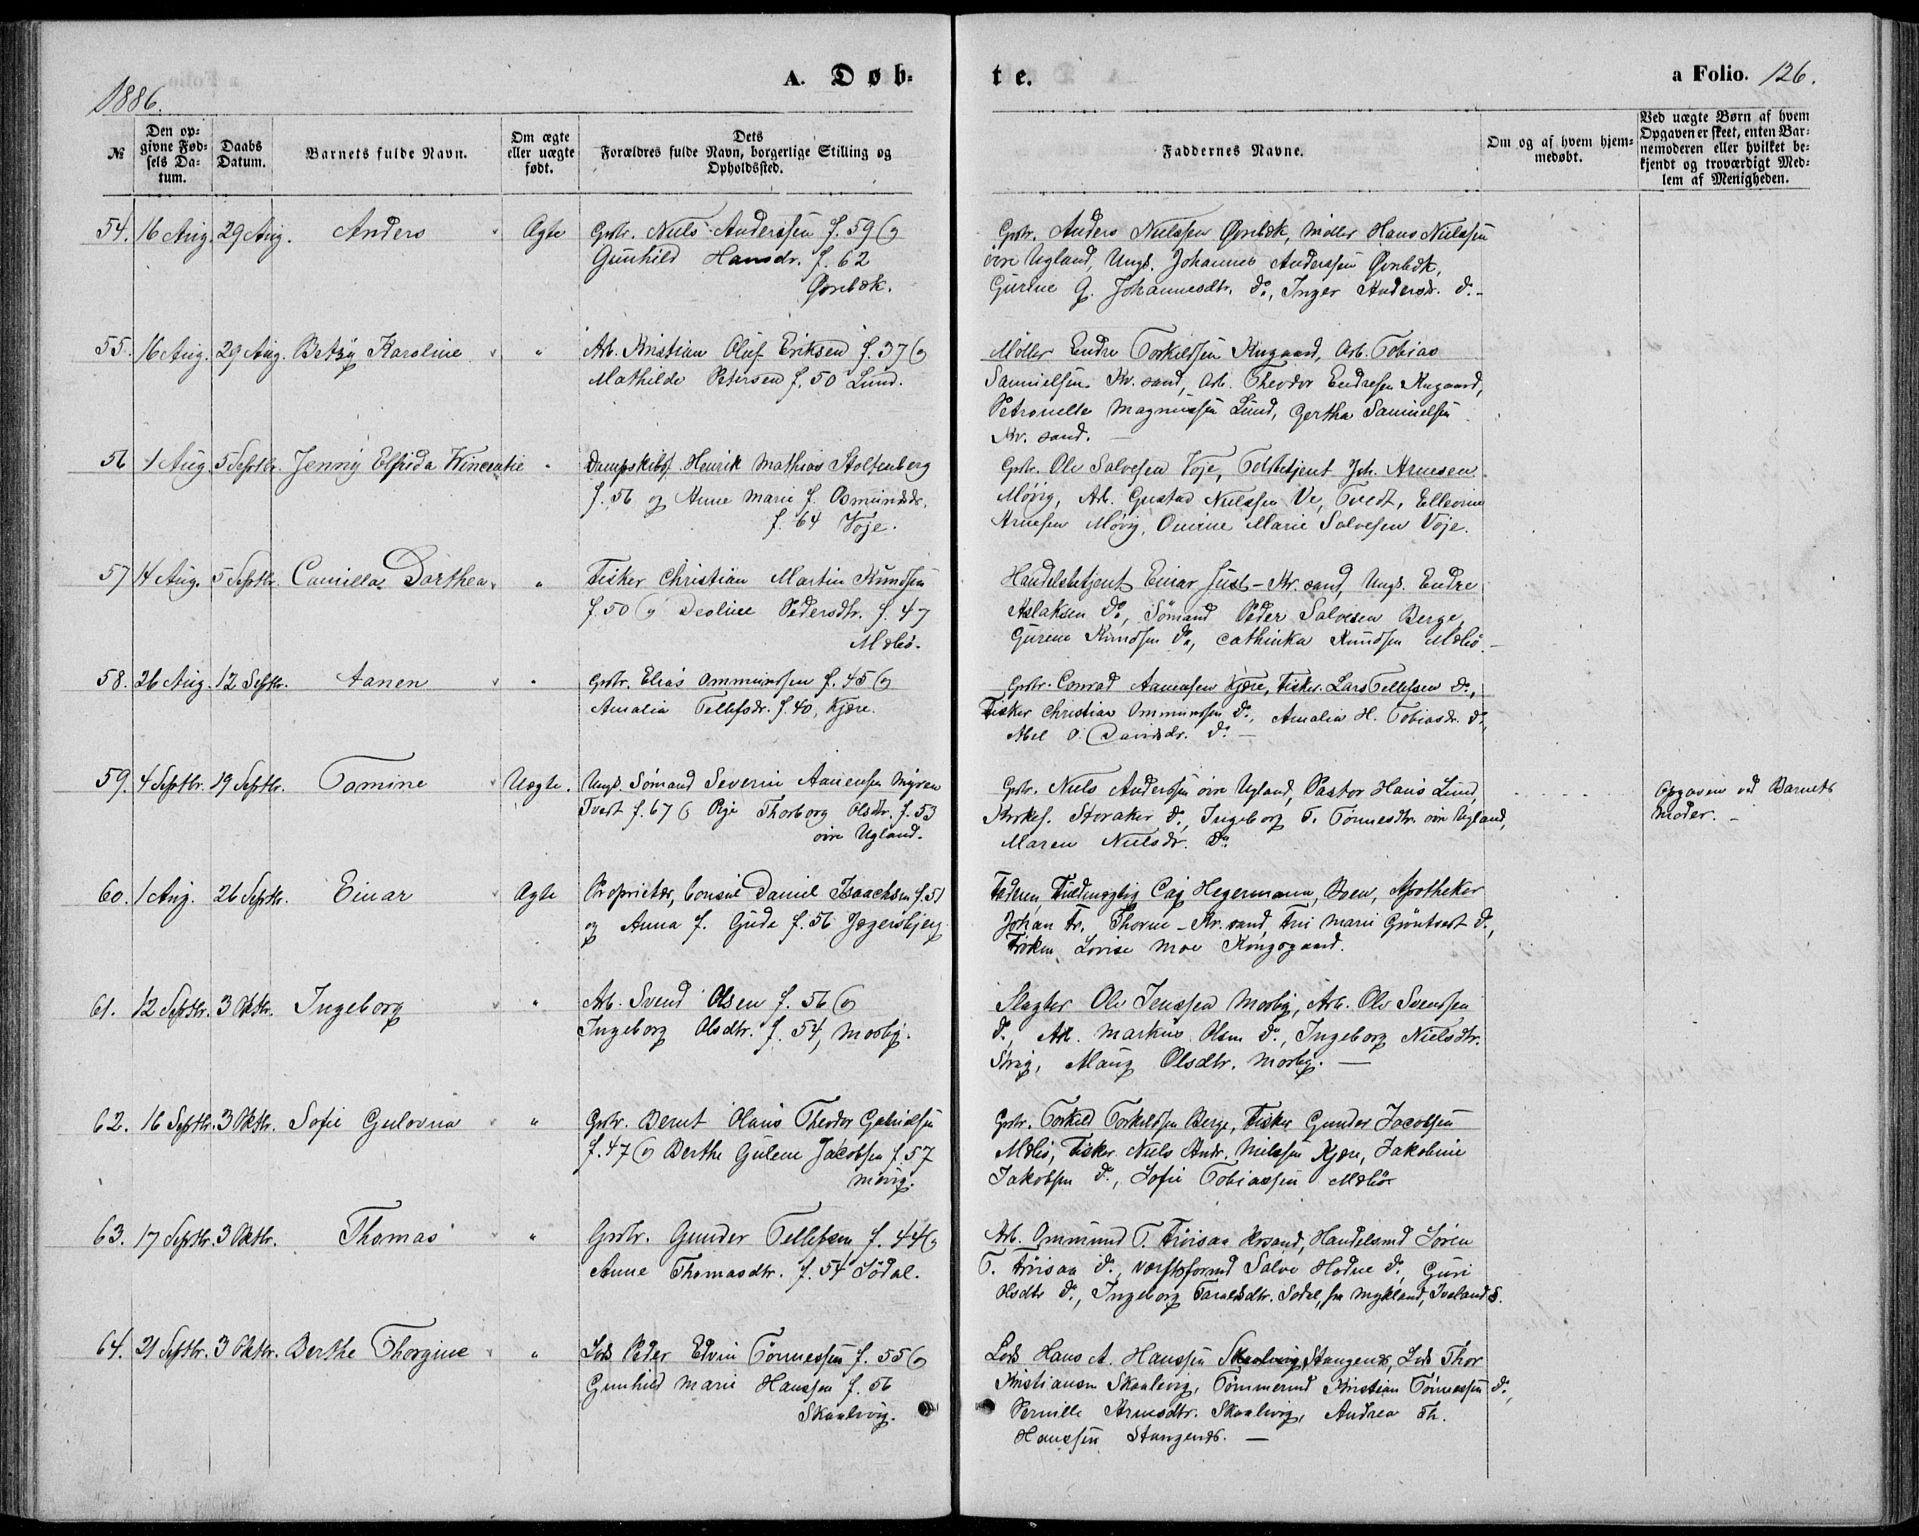 1886.
A. Døb-
te.
a Folio. 126.
№
Den op-
givne Fød-
sels Da-
tum.
Daabs
Datum.
Barnets fulde Navn.
Om ægte
eller uægte
født.
Dets
Forældres fulde Navn, borgerlige Stilling og
Opholdssted.
Faddernes Navne.
Om og af hvem hjem-
medøbt.
Ved uægte Børn af hvem
Opgaven er skeet, enten Bar-
nemoderen eller hvilket be-
kjendt og troværdigt Med-
lem af Menigheden.
54. 16 Aug. 29 Aug. Anders Ægte
Grbr. Niels Anderssen f. 59 og
Gunhild Hansdr. f. 62
Ørnbæk.
Grbr. Anders Nielssen Ørnbæk, Møller Hans Nielssen
øvre Ugland, Ungk. Johannes Anderssen Ørnbæk,
Gurine G. Johannesdtr. do., Inger Andersdr. do.-
55. 16 Aug. 29 Aug. Betzy Karoline "
Arb. Kristian Oluf Eriksen f. 37 og
Mathilde Petersen f. 50 Lund.
Møller Endre Torkildssen Kugaard, Arb. Tobias
Samuelsen Kr.sand, Arb. Theodor Endresen Kugaard,
Petronelle Magnussen Lund, Gertha Samuelsen
Kr.sand. —
56 1 Aug. 5 Septbr. Jenny Elfrida Wincentie "
Dampskibsf. Henrik Mathias Stoltenberg
f. 56 og Anne Marie f. Osmundsdr.
f. 64 Voje.
Grbr. Ole Salvesen Voje, Toldbetjent Joh. Arnesen
Møvig, Arb. Gustav Nielssen Ve, Tvedt, Ellevine
Arnesen Møvig, Omine Marie Salvesen Voje.
57 14 Aug. 5 Septbr. Camilla Dorthea "
Fisker Christian Martin Knudsen
f. 50 og Deoline Pedersdtr. f. 47
Mæbø.
Handelsbetjent Einar Just - Kr.sand, Ungk. Endre
Aslaksen do., Sømand Peder Salvesen Berge,
Gurine Knudsen do., Cathinka Knudsen Mæbø.-
58. 26 Aug. 12 Septbr. Aanen "
Grbr. Elias Ommundsen f. 45 og
Amalia Tellefsdr. f. 40, Kjære.
Grbr. Conrad Aanensen Kjære, Fisker Lars Tellefsen do.,
Fisker Christian Ommundsen do., Amalia H. Tobiasdr. do.
Abel O. Davidsdr. do. —
59. 4 Septbr. 19 Septbr. Tomine Uægte.
Ungk. Sømand Severin Aanensen Myren
Tvedt f. 67 og Pige Thorborg Olsdtr. f. 53
øvre Ugland.
Grbr. Niels Anderssen øvre Ugland, Pastor Hans Lund,
Kirkes. Storaker do., Ingeborg T. Tønnesdtr. øvre Ugland,
Maren Nielsdr. do.
Opgaven ved Barnets
Moder. -
60. 1 Aug. 26 Septbr. Einar Ægte
Proprietær, Consul Daniel Isaachsen f. 51
og Anna f. Gude f. 56 Jegersbjerg
Faderen, Fuldmægtig Caj Hegermann, Boen, Apotheker
Johan Fr. Thorne - Kr.sand, Fru Marie Grøntvedt do.,
Frøken Lovise Moe Kongsgaard.
61. 12 Septbr. 3 Oktbr. Ingeborg "
Arb. Svend Olsen f. 56 og
Ingeborg Olsdtr. f. 54, Mosby.
Slagter Ole Jenssen Mosby, Arb. Ole Svendsen
do., Arb. Markus Olsen do., Ingeborg Nielsdtr.
Strai, Maug Olsdtr. Mosby. —
62. 16 Septbr. 3 Oktbr. Sofie Gulovna "
Grbr. Bernt Hans Theodor Gabrielsen
f. 47 og Berthe Gulene Jacobsen f. 57
Møvig.
Grbr. Torkild Torkildsen Berge, Fisker Gunder Jacobsen
Mæbø, Fisker Niels Andr. Nielssen Kjære, Jakobine
Jakobsen do., Sofie Tobiassen Mæbø
63. 17 Septbr. 3 Oktbr. Thomas "
Grbr. Gunder Tellefsen f. 44 og
Anne Thomasdtr. f. 54 Sødal.
Arb. Ommund T. Frøisaa Krsand, Handelsmd Søren
T. Frøisaa do., Værftsformd Salve Hodne do., Guri
Olsdtr do., Ingeborg Taraldsdtr. Sødal, fra Mykland, Iveland S.
64. 21 Septbr. 3 Oktbr. Berthe Thorgine "
Lods Peder Edvin Tønnessen f. 55 og
Gunhild Marie Hanssen f. 56
Skaalevig.
Lods Hans A. Hanssen Stangenes, Lods Thor
Kristiansen Skaalevig, Tømmermd Kristian Tønnessen do.,
Pernille Arnesdtr. Skaalevig, Andrea Th.
Hanssen Stangenes. —